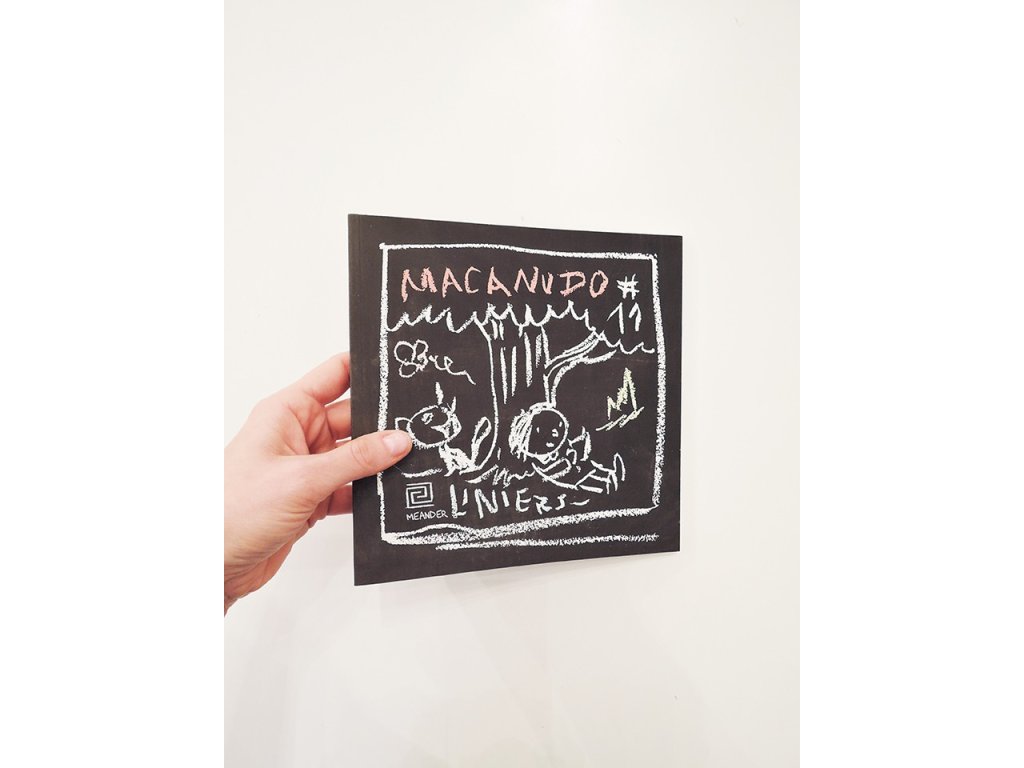 MACANUDO #
11
MEANDER
LINIERS